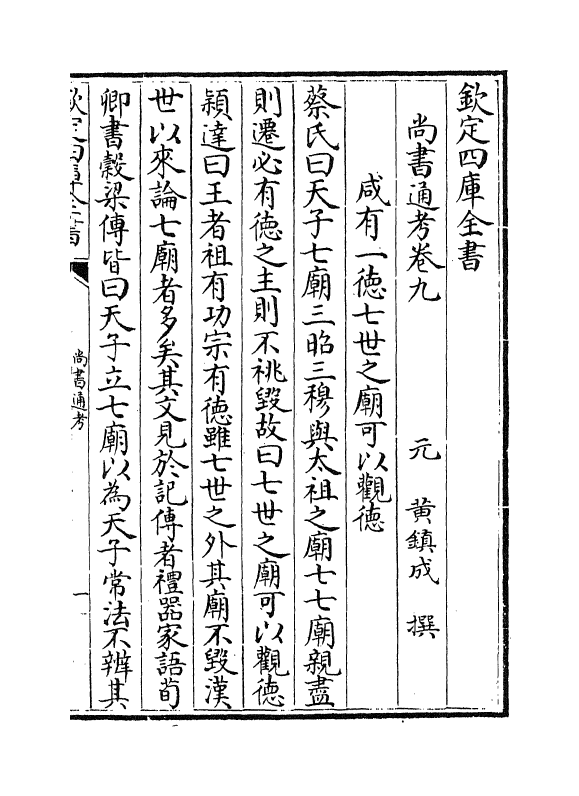 欽定四庫全書
尚書通考卷九　元　黄鎮成　撰
咸有一徳七世之廟可以觀徳
蔡氏曰天子七廟三昭三穆與太祖之廟七七廟親盡
則遷必有徳之主則不祧毁故曰七世之廟可以觀徳
穎達曰王者祖有功宗有徳雖七世之外其廟不毁漢
世以來論七廟者多矣其文見於記傳者禮器家語荀
卿書穀梁傳皆曰天子立七廟以為天子常法不辨其
欽定四庫全書
尚書通考
一